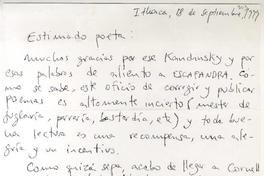 Ithaca, 18 de septiembre, 1999
Estimado poeta:
Muchas gracias por ese Kandinsky y por
esas palabras de aliento a ESCAFANDRA. Co-
mo se sabe, este oficio de corregir y publicar
poemas es altamente incierto (mester de
juglaría, perrería, bastardía, etc) y toda bue
na lectura es una recompensa, una ale-
gría y un incentivo.
Como quizá sepa, acabo de llegar a Cornell